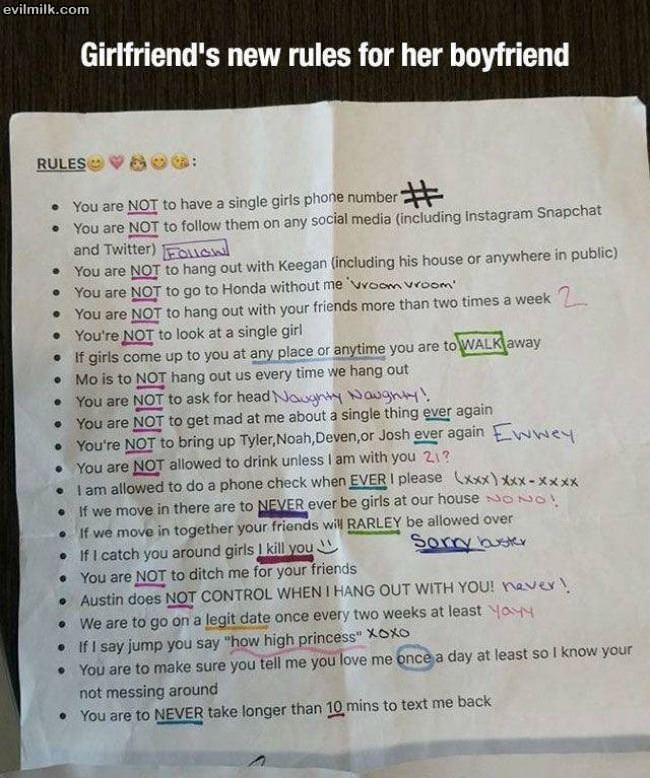 evilmilk.com
Girlfriend's new rules for her boyfriend
RULES😊 💗 👸 😊 😘:
• You are NOT to have a single girls phone number #
• You are NOT to follow them on any social media (including Instagram Snapchat
and Twitter) Follow
• You are NOT to hang out with Keegan (including his house or anywhere in public)
• You are NOT to go to Honda without me 'vroom vroom'
• You are NOT to hang out with your friends more than two times a week 2
• You're NOT to look at a single girl
• If girls come up to you at any place or anytime you are to WALK away
• Mo is to NOT hang out us every time we hang out
• You are NOT to ask for head Naughty Naughty!
• You are NOT to get mad at me about a single thing ever again
• You're NOT to bring up Tyler,Noah,Deven,or Josh ever again Ewwey
• You are NOT allowed to drink unless I am with you 21?
• I am allowed to do a phone check when EVER I please (xxx) xxx-xxxx
• If we move in there are to NEVER ever be girls at our house NO NO!
• If we move in together your friends will RARLEY be allowed over
Sorry buster
• If I catch you around girls I kill you :)
• You are NOT to ditch me for your friends
• Austin does NOT CONTROL WHEN I HANG OUT WITH YOU! never!
• We are to go on a legit date once every two weeks at least Yayy
• If I say jump you say "how high princess" XOXO
• You are to make sure you tell me you love me once a day at least so I know your
not messing around
• You are to NEVER take longer than 10 mins to text me back